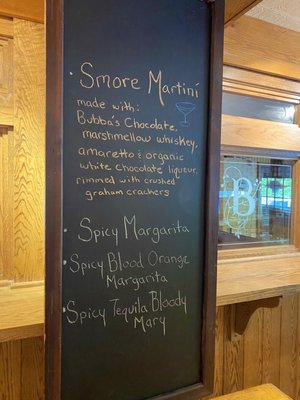 Smore Martini
made with:
Bubba's Chocolate,
marshmellow whiskey,
amaretto & organic
white chocolate liqueur,
rimmed with crushed
graham crackers
Spicy Margarita
Spicy Blood Orange
Margarita
Spicy Tequila Bloody
Mary
B